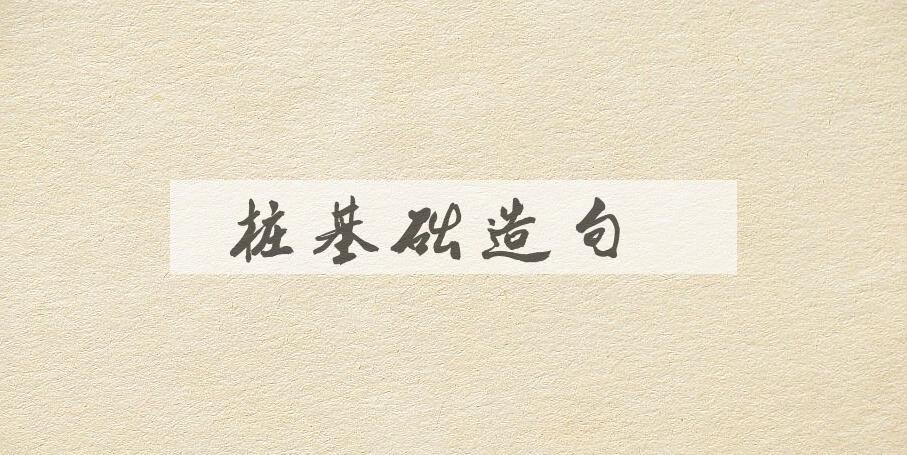 桩基础造句